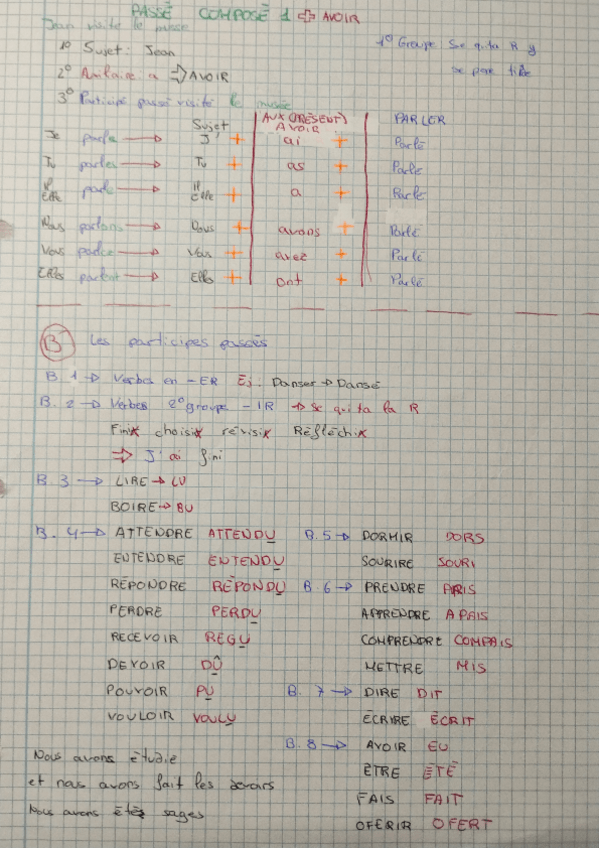 PASSÉ COMPOSÉ 1 ➪ AVOIR
Jean visite le musée
1º Sujet: Jean
1º Groupe Se quita R y
2º Auxiliaire a ⇒ AVOIR
se pone tilde
3º Participe passé visité le musée
Sujet AUX (PRÉSENT) AVOIR PARLER
Je parle → J' + ai + Parlé
Tu parles → Tu + as + Parlé
Il Elle parle → Il Elle + a + Parlé
Nous parlons → Nous + avons + Parlé
Vous parlez → Vous + avez + Parlé
Elles parlent → Elles + ont + Parlé
B Les participes passés
B.1 → Verbes en -ER Ej. Danser → Dansé
B.2 → Verbes 2º groupe -IR → Se quita la R
Finir choisir révisir Réfléchir
⇒ J'ai fini
B.3 → LIRE → LU
BOIRE → BU
B.4 → ATTENDRE ATTENDU B.5 → DORMIR DORS
ENTENDRE ENTENDU SOURIRE SOURI
RÉPONDRE RÉPONDU B.6 → PRENDRE PRIS
PERDRE PERDU APPRENDRE APRIS
RECEVOIR REÇU COMPRENDRE COMPRIS
DEVOIR DÛ METTRE MIS
POUVOIR PU B.7 → DIRE DIT
VOULOIR VOULU ÉCRIRE ÉCRIT
B.8 → AVOIR EU
Nous avons étudie
ÊTRE ÉTÉ
et nous avons fait les devoirs
FAIS FAIT
Nous avons étés sages
OFERIR OFERT